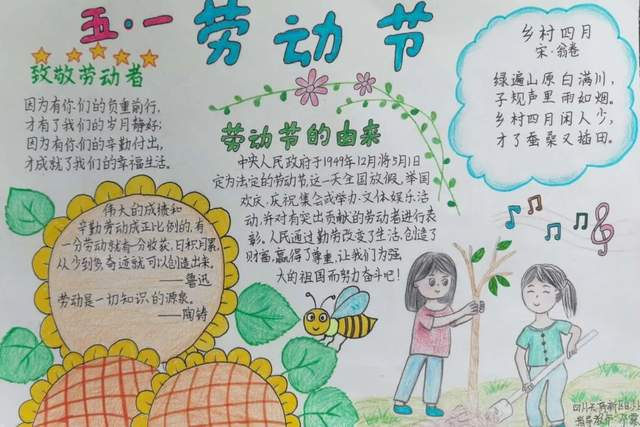 五·一 劳动节
致敬劳动者
因为有你们的负重前行,
才有了我们的岁月静好;
因为有你们的辛勤付出,
才成就了我们的幸福生活。
伟大的成绩和
辛勤劳动成正比例的,有
一分劳动就有一分收获,日积月累,
从少到多奇迹就可以创造出来。
——鲁迅
劳动是一切知识的源泉。
——陶铸
劳动节的由来
中央人民政府于1949年12月将5月1日
定为法定的劳动节,这一天全国放假,举国
欢庆,庆祝集会或举办文体娱乐活
动,并对有突出贡献的劳动者进行表
彰,人民通过勤劳改变了生活,创造了
财富,赢得了尊重,让我们为强
大的祖国而努力奋斗吧!
乡村四月
宋·翁卷
绿遍山原白满川,
子规声里雨如烟。
乡村四月闲人少,
才了蚕桑又插田。
指导教师